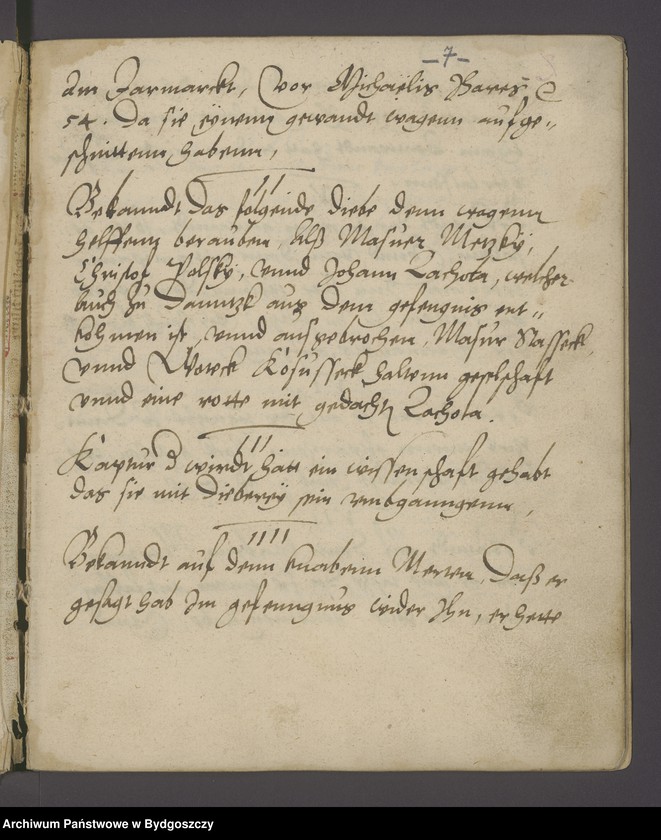 -7-
Im Jarmarckt, vor Michaelis Anno
54. Da sie eynenn gewandt wagenn aufge„
schnittenn habenn,
II
Bekanndt das folgende diebe denn wagenn
helffenn berauben, Alß Masuer Metzky,
Christof Polsky, vnnd Johann Lachota, welcher
auch zu Danntzk aus dem gefengnis ent„
kohmen ist, vnnd ausgebrochen, Masur Stasseck,
vnnd Woteck Kosusseck haltenn geselschaft
vnnd eine rotte mit gedacht Lachota.
III
Kaptur d wirdt hatt ein wissenschaft gehabt
das sie mit dieberey sein vmbganngenn,
IIII
Bekanndt auf denn knabenn Merten, Daß er
gesagt hab Im gefenngnus wider Ihn, er hette
Archiwum Państwowe w Bydgoszczy